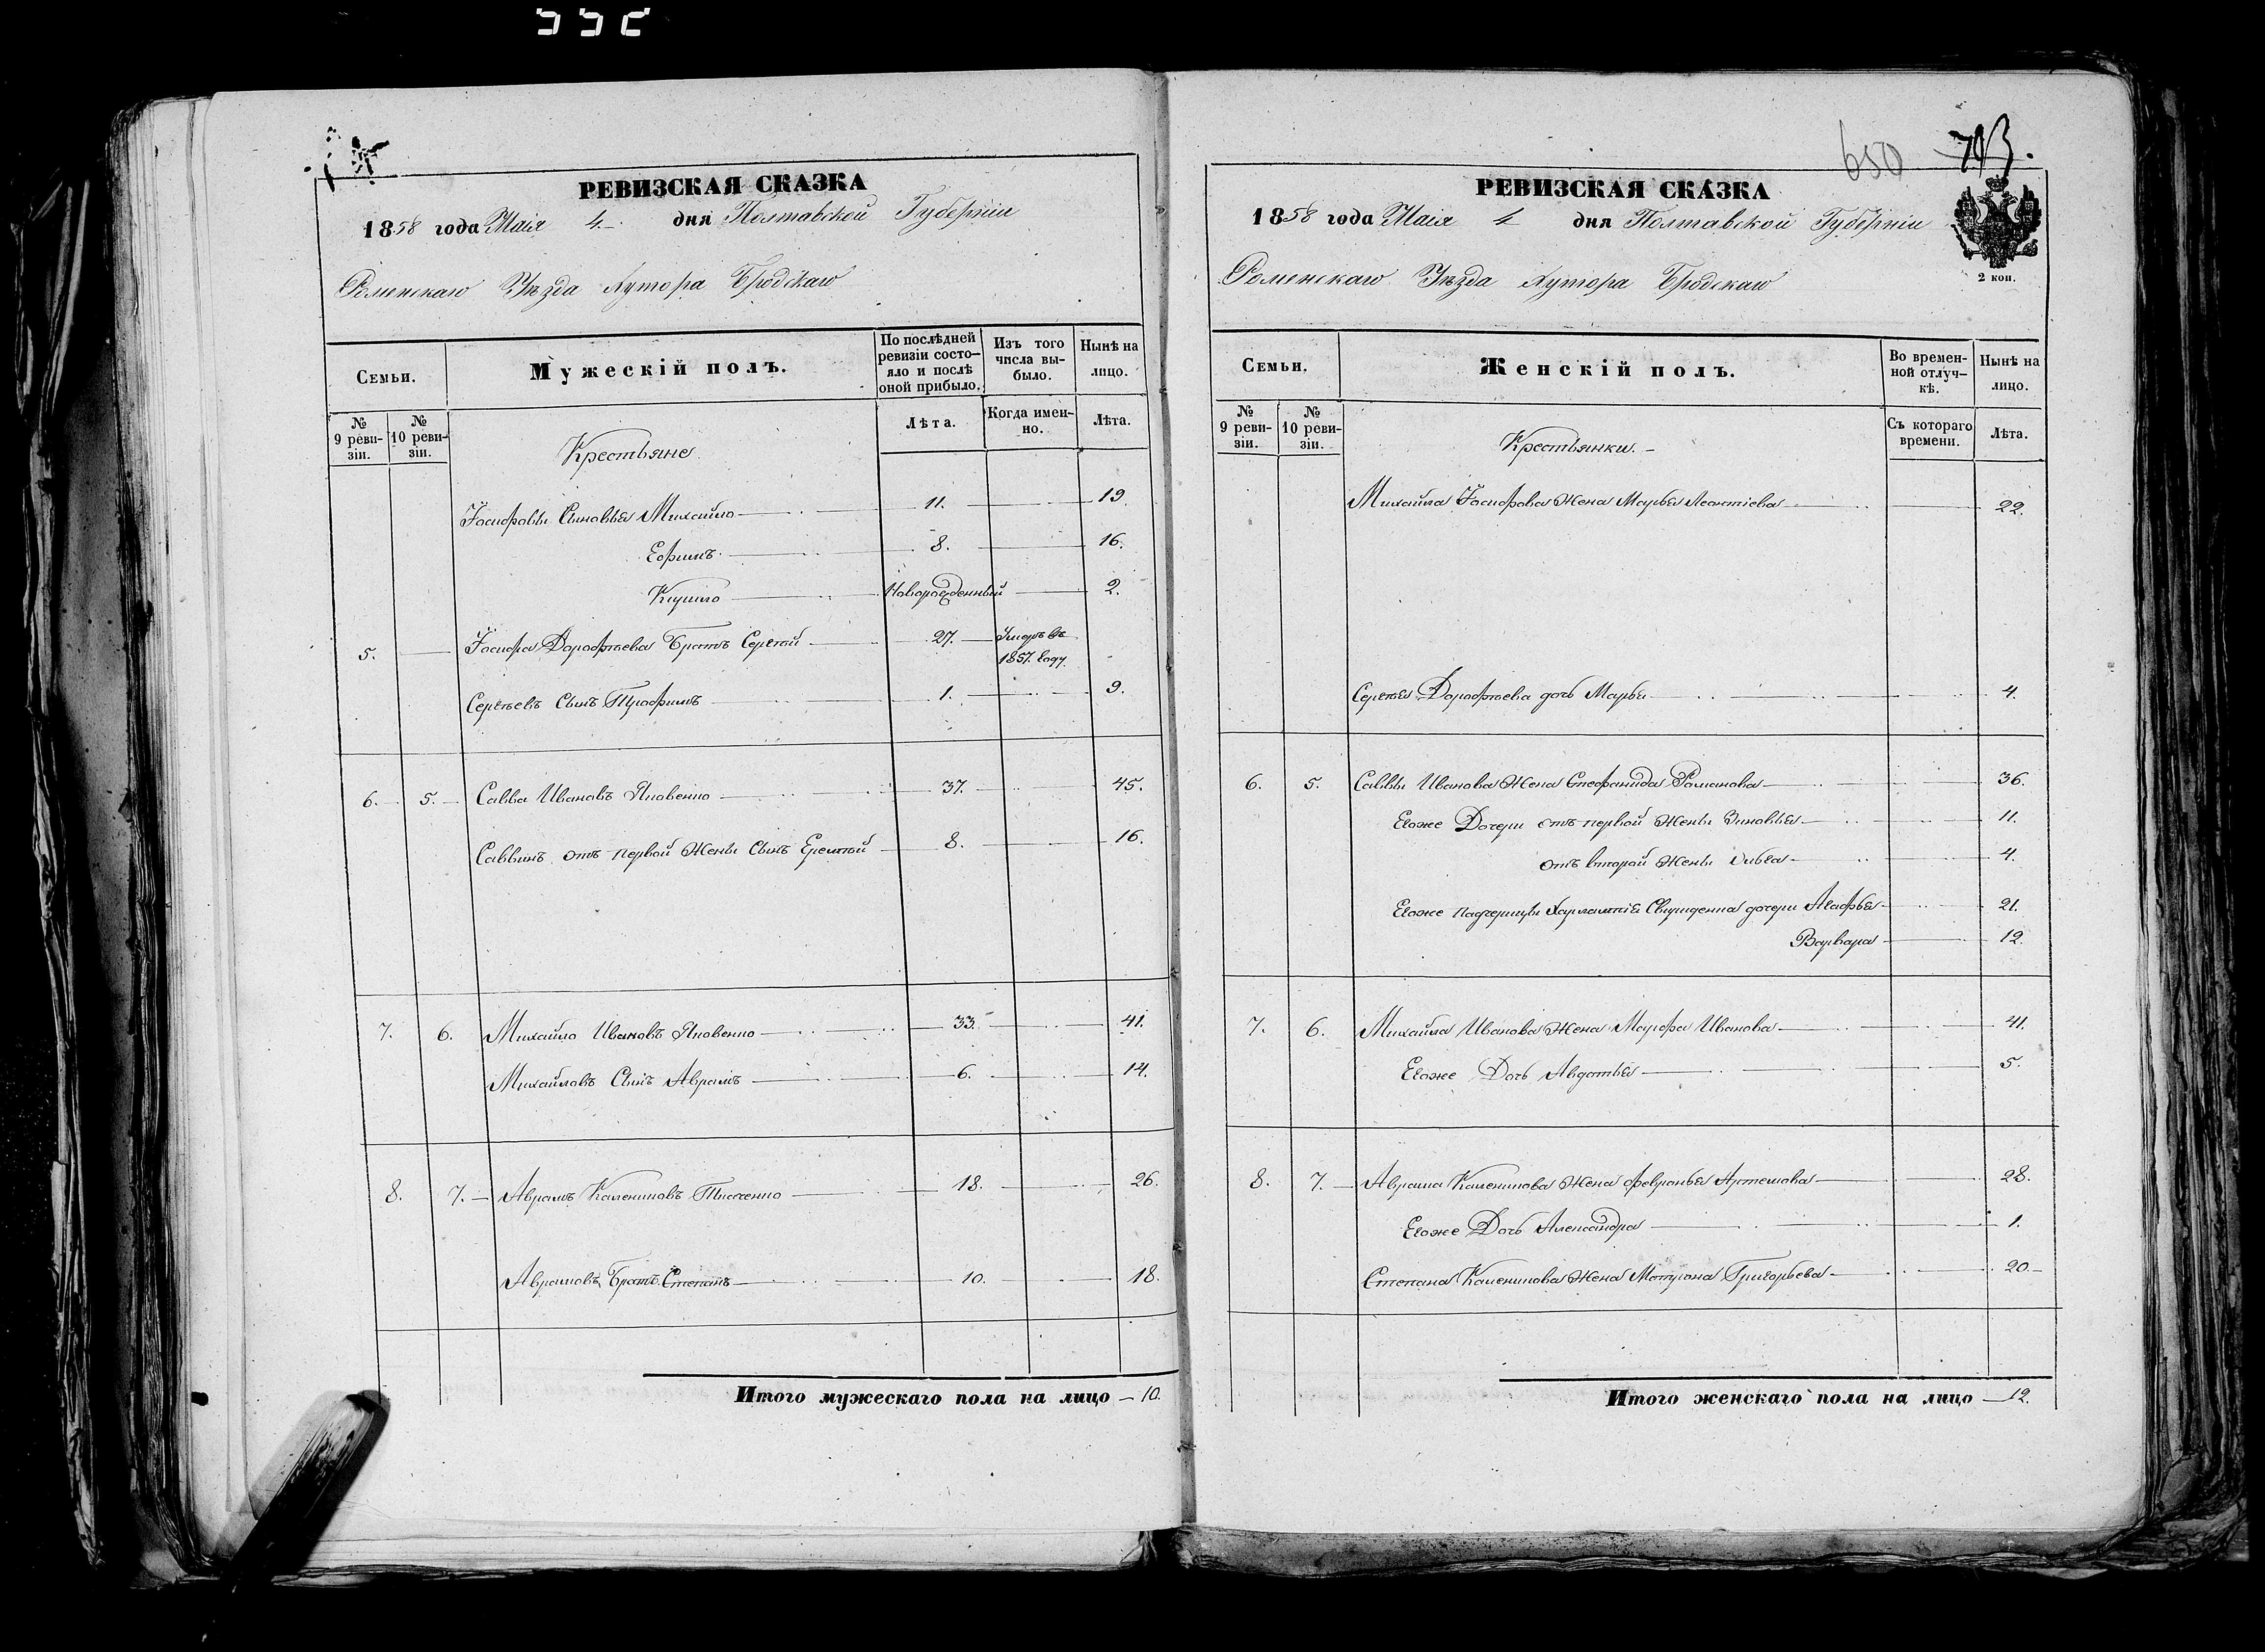 РЕВИЗСКАЯ СКАЗКА
1858 года Маія 4. дня Полтавской Губерніи
Роменскаго Уѣзда Хутора Бродскаго
Семьи.
Мужескій полъ.
По послѣдней ревизіи состо-яло и послѣ оной прибыло.
Изъ того числа вы-было.
Нынѣ на лицо.
№ 9 реви-зіи.
№ 10 реви-зіи.
Крестьяне
Лѣта.
Когда имен-но.
Лѣта.
Іосифовы Сыновья Михайло 11. 19
Ефимъ 8. 16.
Кирило Новорожденный 2.
5. Іосифа Дорофѣева Братъ Сергѣй 27. Умеръ въ 1857. году
Сергѣевъ Сынъ Трофимъ 1. 9.
6. 5. Савва Ивановъ Яковенко 37. 45.
Саввинъ отъ первой Жены Сынъ Еремѣй 8. 16.
7. 6. Михайло Ивановъ Яковенко 33. 41.
Михайловъ Сынъ Аврамъ 6. 14.
8. 7. Аврамъ Калениковъ 18. 26.
Аврамовъ Братъ Степанъ 10. 18.
Итого мужескаго пола на лицо 10.
650 713.
РЕВИЗСКАЯ СКАЗКА
1858 года Маія 4 дня Полтавской Губерніи
2 коп.
Роменскаго Уѣзда Хутора Бродскаго
Семьи.
Женскій полъ.
Во времен-ной отлуч-кѣ.
Нынѣ на лицо.
№ 9 реви-зіи.
№ 10 реви-зіи.
Крестьянки.
Съ котораго времени.
Лѣта.
Михайла Іосифова Жена Марья Леонтіева 22.
Сергѣя Дорофѣева дочь Марья 4.
6. 5. Саввы Иванова Жена Стефанида Романова 36.
Егоже Дочери отъ первой Жены Зиновья 11.
отъ второй Жены 4.
Егоже падчерицы Харлампія дочери Агафья 21.
Варвара 12.
7. 6. Михайла Иванова Жена Марфа Иванова 41.
Егоже Дочь Авдотья 5.
8. 7. Аврама Каленикова Жена Февронья Артемова 28.
Егоже Дочь Александра 1.
Степана Каленикова Жена Матрона Григорьева 20
Итого женскаго пола на лицо 12.